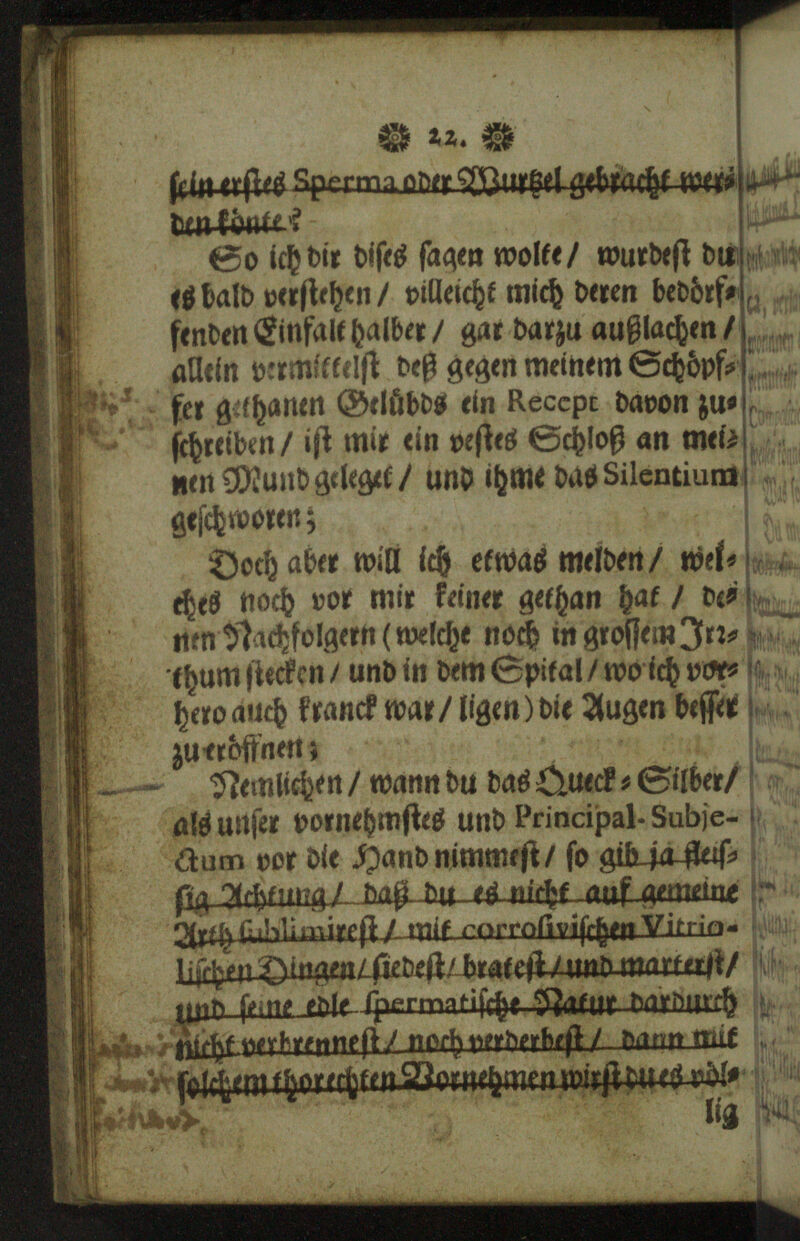 22.
sein erstes Sperma oder Wurtzel gebracht wer⸗
den könte?
So ich dir dises sagen wolte/ wurdest du
es bald verstehen/ villeicht mich deren bedörf⸗
fenden Einfalt halber/ gar darzu außlachen/
allein vermittelst deß gegen meinem Schöpf⸗
fer gethanen Gelübds ein Recept davon zu⸗
schreiben/ ist mir ein vestes Schloß an mei⸗
nen Mund geleget/ und ihme das Silentium
geschworen;
Doch aber will ich etwas melden/ wel⸗
ches noch vor mir keiner gethan hat/ de⸗
nen Nachfolgern (welche noch in grossem Irr⸗
thum stecken/ und in dem Spital/ wo ich vor⸗
hero auch kranck war/ ligen) die Augen besser
zu eröffnen;
Nemlichen/ wann du das Queck⸗Silber/
als unser vornehmstes und Principal-Subje-
ctum vor die Hand nimmest/ so gib ja fleis⸗
sig Achtung/ daß du es nicht auf gemeine
Arth sublimirest/ mit corrosivischen Vitrio-
lischen Dingen/ siedest/ bratest/ und marterst/
und seine edle spermatische Natur dardurch
nicht verbrennest/ noch verderbest/ dann mit
solchem thorechten Vornehmen wirst du es völ⸗
lig